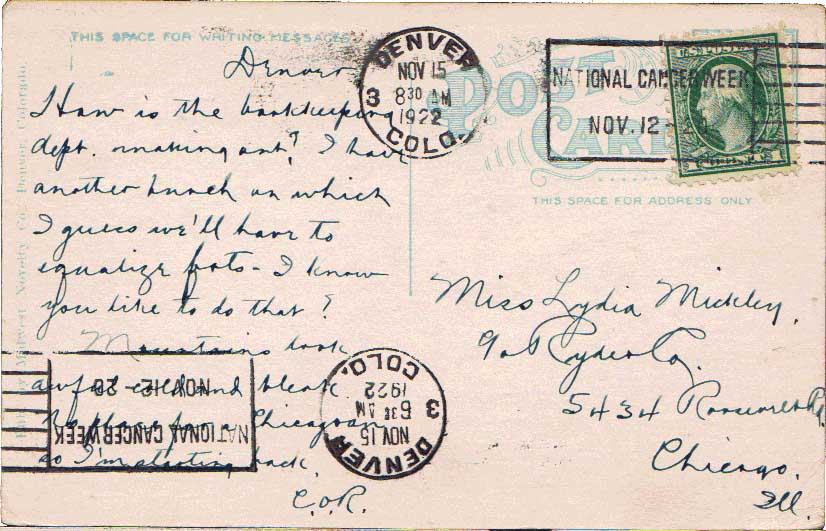 THIS SPACE FOR WRITING MESSAGES
Denver
How is the bookkeeping
dept. making out? I have
another hunch on which
I guess we'll have to
equalize frts - I know
you like to do that?
Mountains look
awful cold and bleak
No place for a Chicagoan
so I'm starting back.
C.O.R.
DENVER
NOV 15
8 30 AM
1922
3
COLO.
NATIONAL CANCER WEEK
NOV. 12 - 20
POST
CARD
THIS SPACE FOR ADDRESS ONLY
Miss Lydia Mickley.
℅ Ryder Co.
5434 Roosevelt Rd.
Chicago.
Ill.
NATIONAL CANCER WEEK
NOV. 12 - 20
DENVER
NOV 15
6 30 AM
1922
3
COLO.
Midwest Novelty Co., Denver, Colorado.